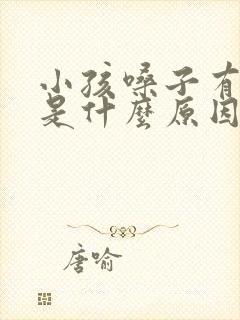 小孩嗓子有
是什麼原因
唐喻